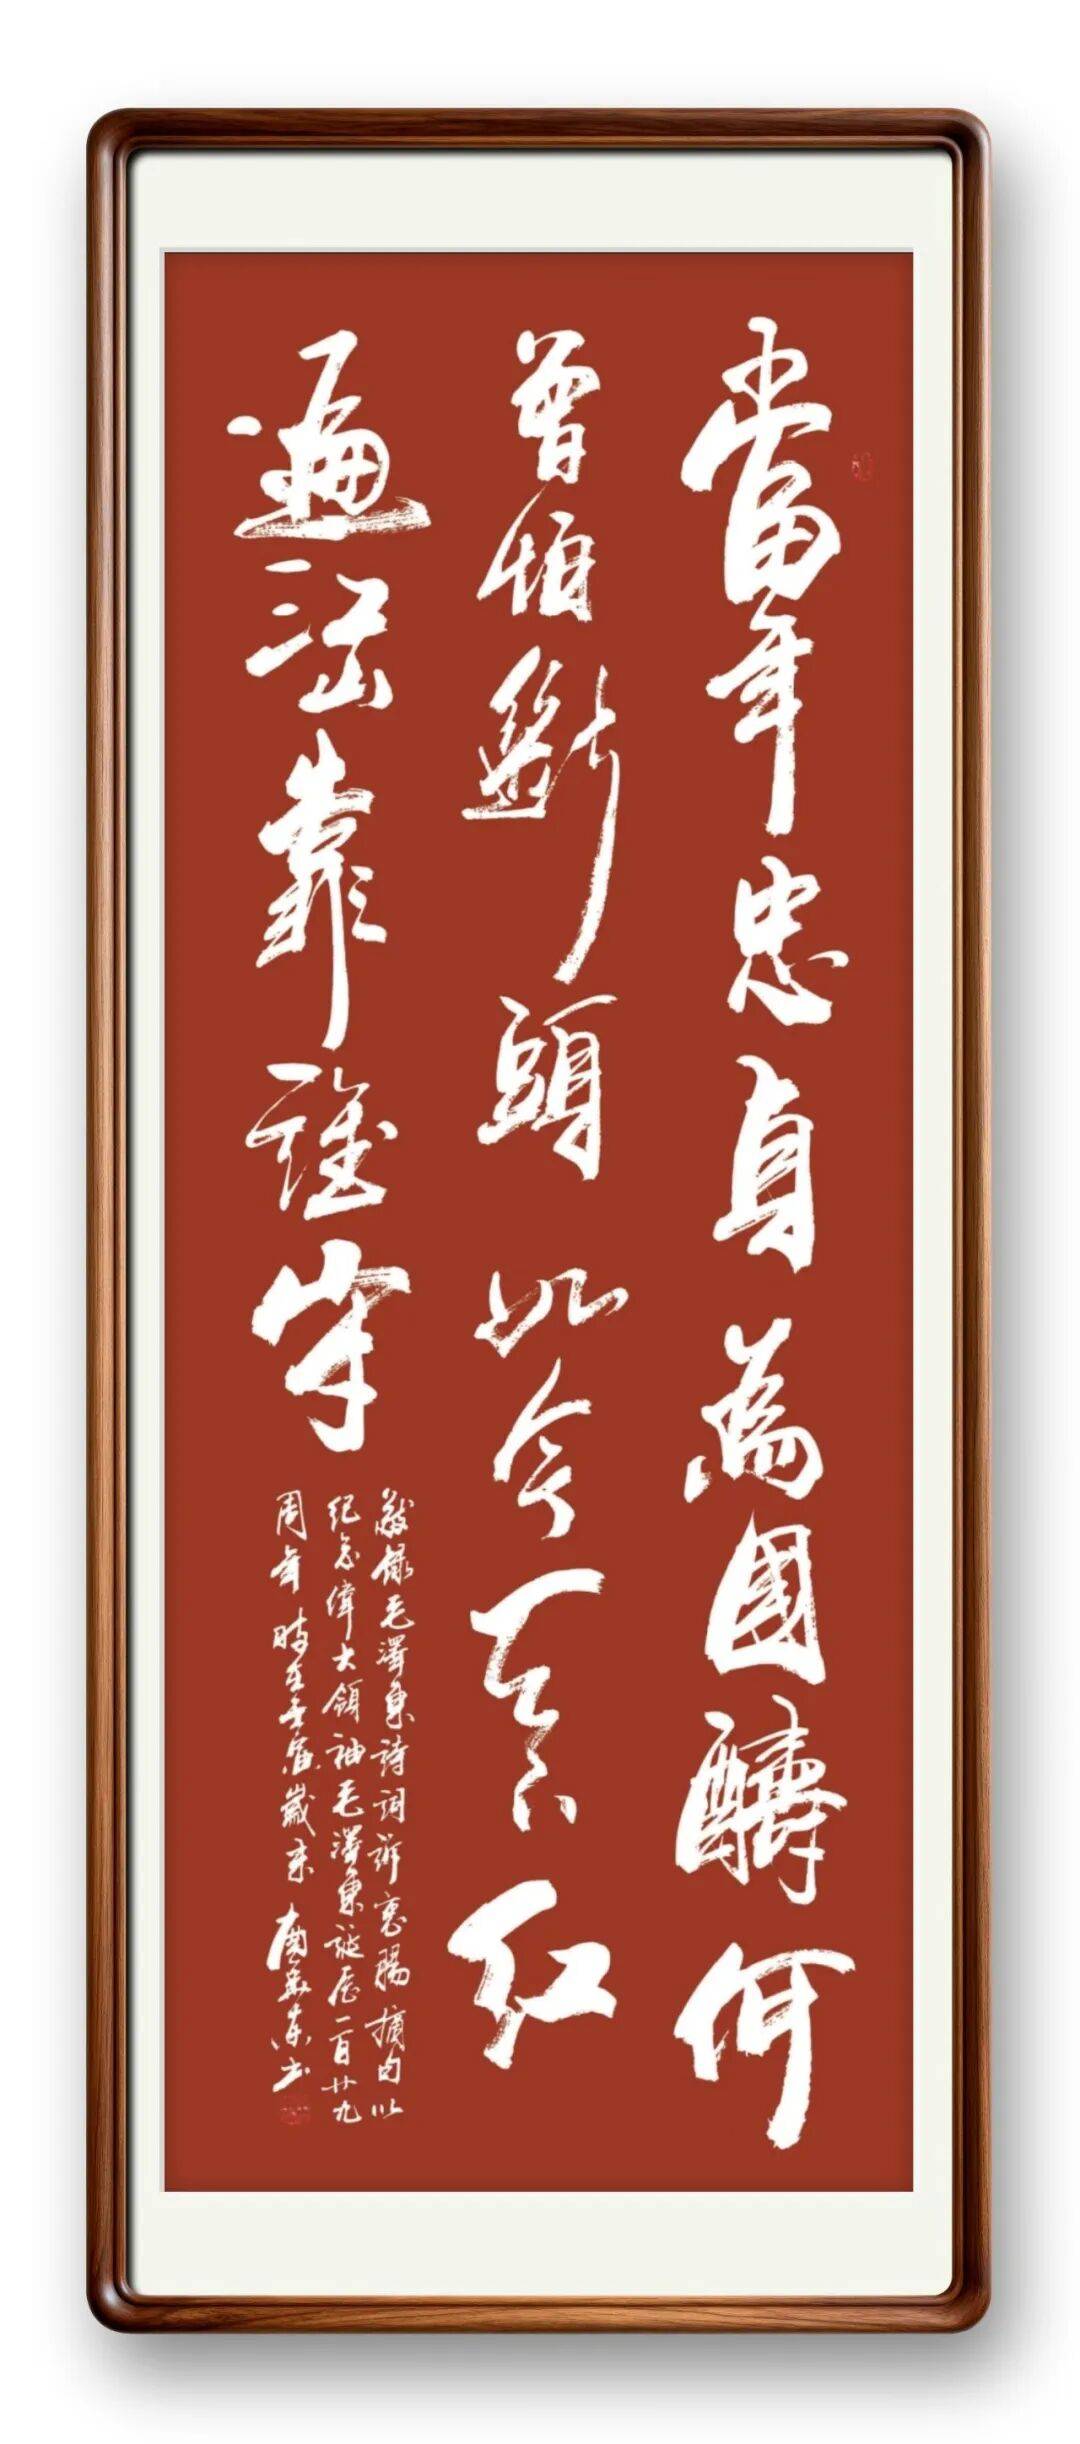 當年忠貞為國醻何
曾怕斷頭如今天下紅
遍江山靠誰守
敬錄毛澤東詩詞訴衷腸摘句以
紀念偉大領袖毛澤東誕辰一百廿九
周年時在壬寅歲末 書